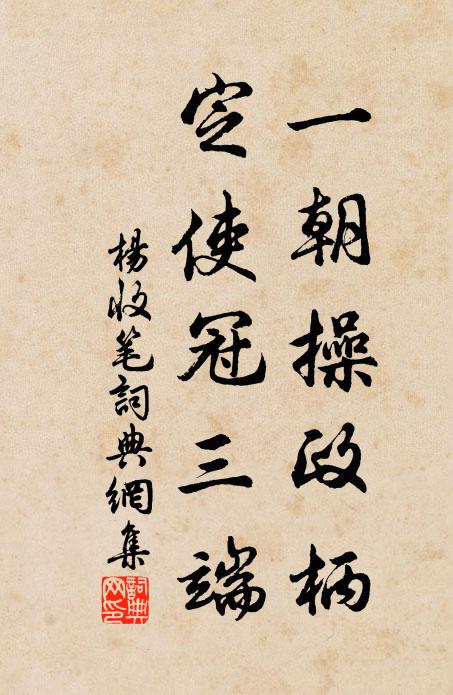 一朝操政柄
定使冠三端
楊收笔詞典網集
詞典网印